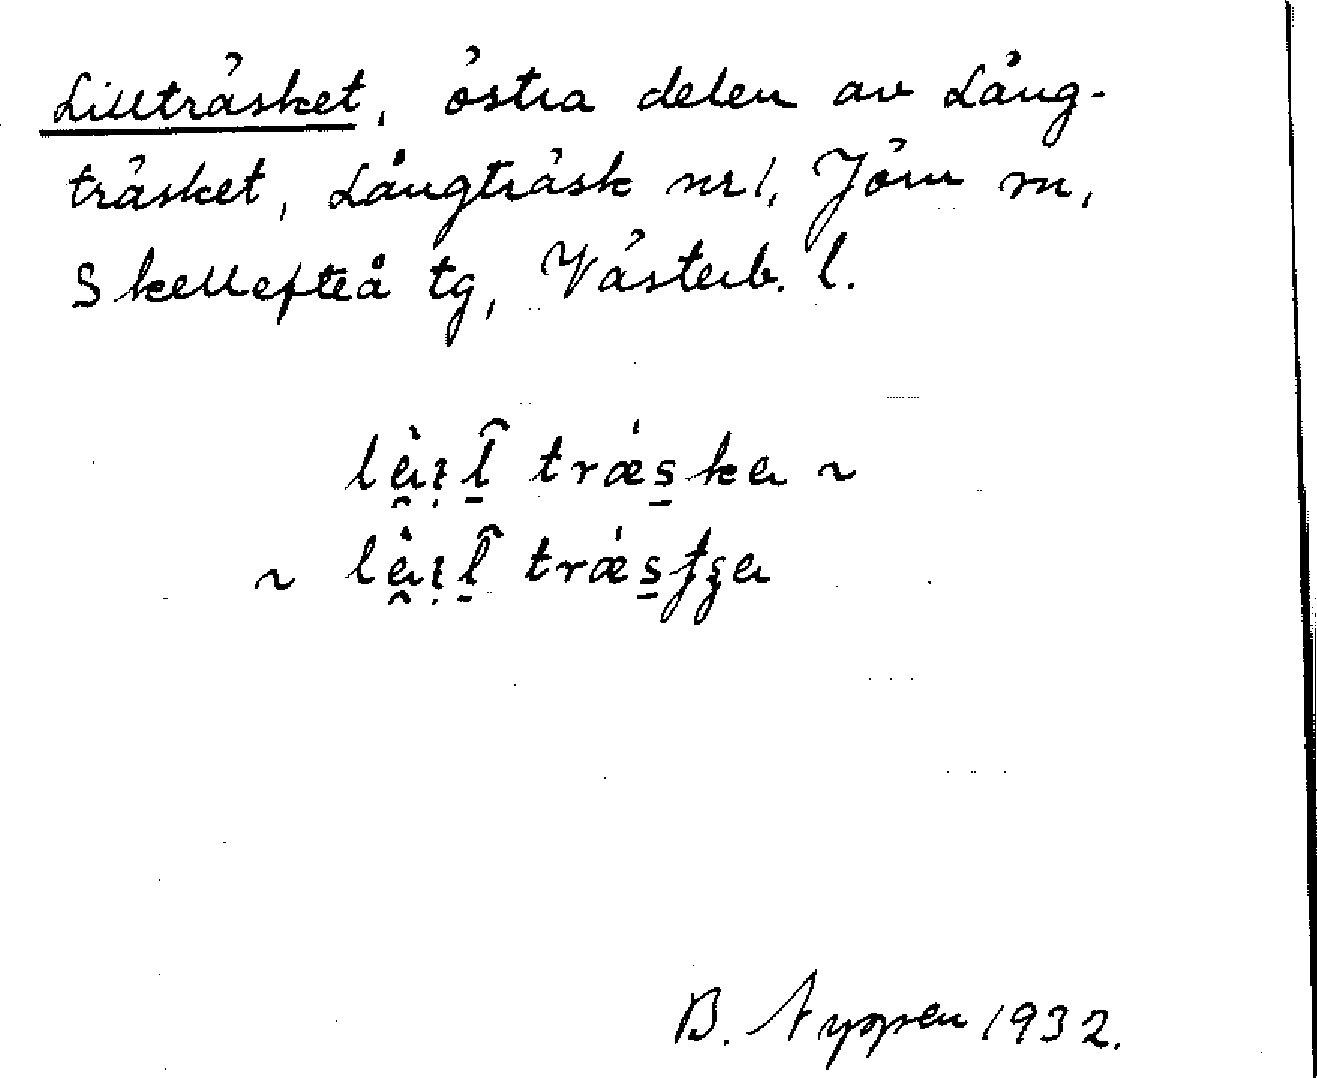 Lillträsket, östra delen av Lång-
träsket, Långträsk nr 1, Jörn sn,
Skellefteå tg, Västerb. l.
träska ~
~
B. Nyppen 1932.